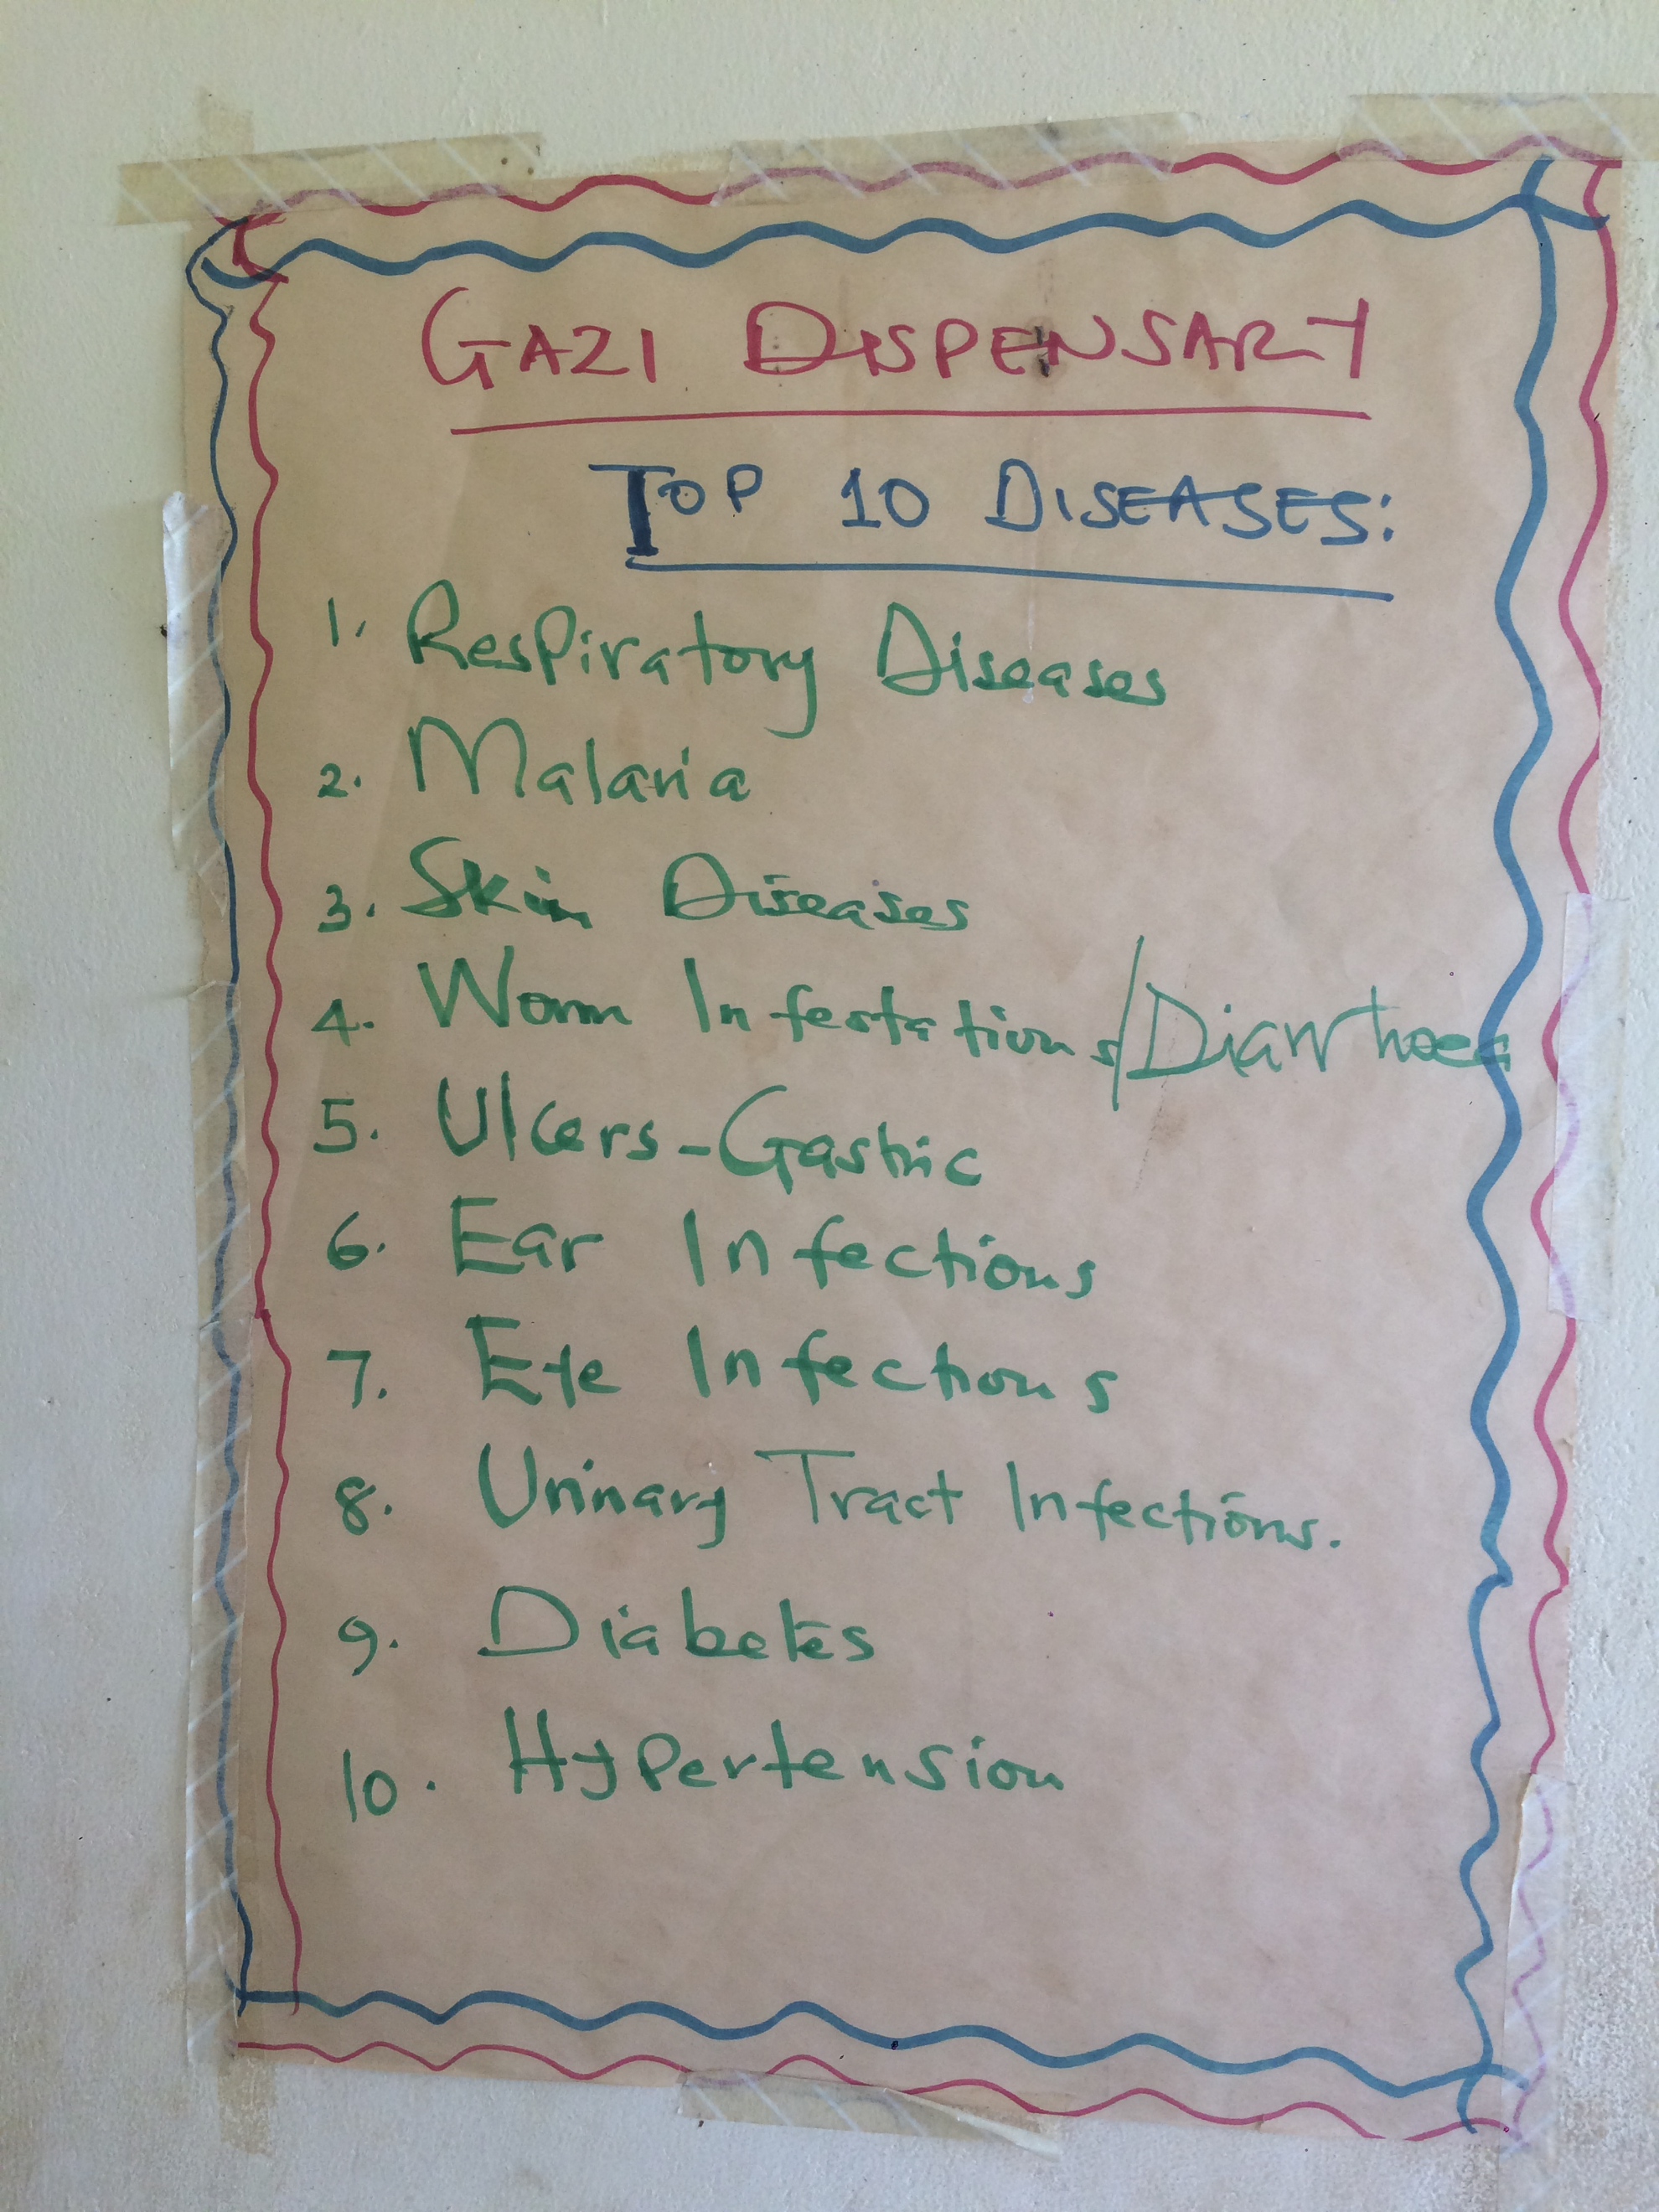 GAZI DISPENSARY
TOP 10 DISEASES:
1. Respiratory Diseases
2. Malaria
3. Skin Diseases
4. Worm Infestations/Diarrhoea
5. Ulcers-Gastric
6. Ear Infections
7. Eye Infections
8. Urinary Tract Infections.
9. Diabetes
10. Hypertension